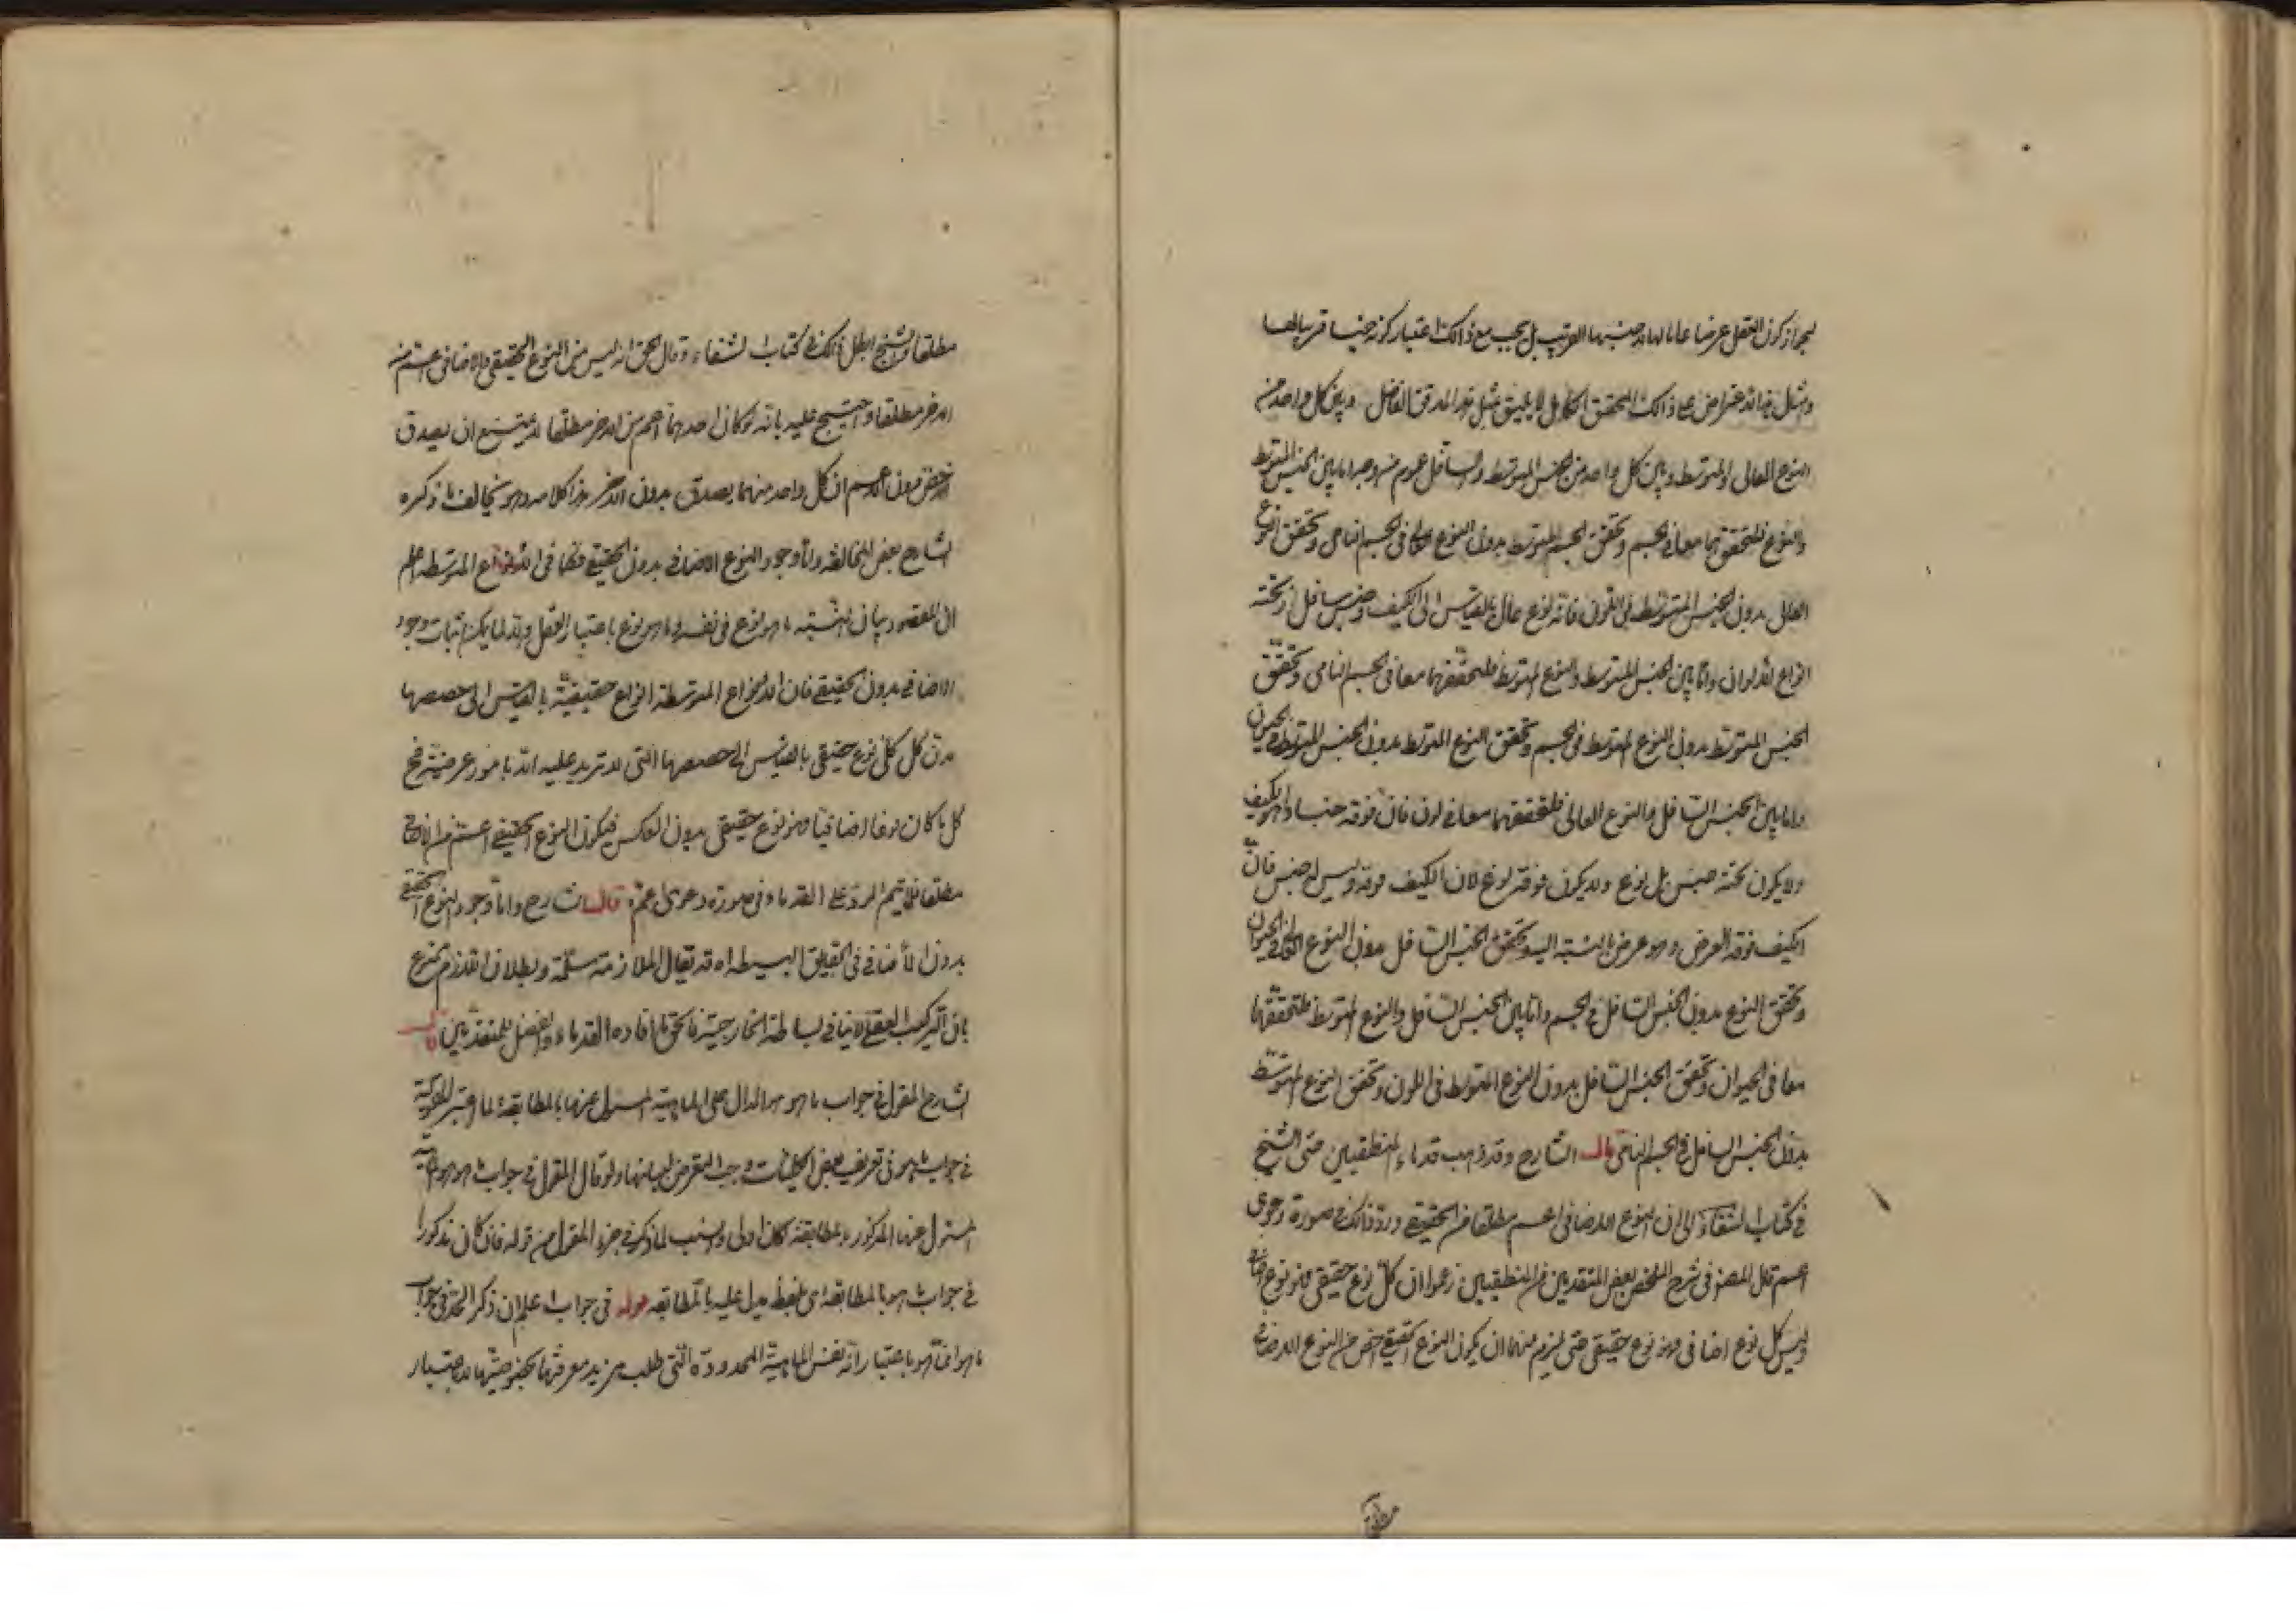 لجواز كون العقل عرضا عاما لها لا جنسها القريب بل يجب مع ذلك اعتبار كونه جنسا قريبا لها
ومثل هذا الاعتراض على ذلك المحقق الكامل لا يليق بمثل هذا المدقق الفاضل وبين كل واحد من
النوع العالى والمتوسط وبين كل واحد من الجنس المتوسط والسافل عموم من وجه اما بين الجنس المتوسط
والنوع فلتحققهما معا فى الجسم وتحقق الجسم المتوسط بدون النوع العالى فى الجسم النامى وتحقق النوع
العالى بدون الجنس المتوسط فى اللون فانه نوع عال بالقياس الى الكيف وجنس سافل اذ تحته
انواع الالوان واما بين الجنس المتوسط والنوع المتوسط فلتحققهما معا فى الجسم النامى وتحقق
الجنس المتوسط بدون النوع المتوسط فى الجسم وتحقق النوع المتوسط بدون الجنس المتوسط فى الحيوان
واما بين الجنس السافل والنوع العالى فلتحققهما معا فى لون فان فوقه جنسا وهو الكيف
ولا يكون تحته جنس بل نوع ولا يكون فوقه نوع لان الكيف فوقه وليس له جنس فان
الكيف فوقه العرض وهو عرض بالنسبة اليه وتحقق الجنس السافل بدون النوع العالى فى الحيوان
وتحقق النوع بدون الجنس السافل فى الجسم واما بين الجنس السافل والنوع المتوسط فلتحققهما
معا فى الحيوان وتحقق الجنس السافل بدون النوع المتوسط فى اللون وتحقق النوع المتوسط
بدون الجنس السافل فى الجسم النامى قال الشارح وقد ذهب قدماء المنطقيين حتى الشيخ
فى كتاب الشفاء الى ان النوع الاضافى اعم مطلقا من الحقيقى ورد ذلك فى صورة دعوى
اعم قال المصنف فى شرح الملخص بعض المتقدمين من المنطقيين زعموا ان كل نوع حقيقى فهو نوع اضافى
وليس كل نوع اضافى فهو نوع حقيقى حتى لزم منهما ان يكون النوع الحقيقى اخص من النوع الاضافى
مطلقا
مطلقا والشيخ ابطل ذلك فى كتاب الشفاء وقال الحق انه ليس من النوع الحقيقى والاضافى اعم من
الاخر مطلقا واحتج عليه بانه لو كان احدهما اعم من الاخر مطلقا لامتنع ان يصدق
الاخص بدون الاعم لان كل واحد منهما يصدق بدون الاخر هذا كلامه وهو يخالف ما ذكره
الشارح بعض المخالفة واما وجود النوع الاضافى بدون الحقيقى فكما فى الانواع المتوسطة اعلم
ان المقصود بيان النسبة ما هو نوع فى نفسه وما هو نوع باعتبار العقل والا لما يمكن اثبات وجود
الاضافى بدون الحقيقى فان الانواع المتوسطة انواع حقيقية بالقياس الى حصصها
بدن كل كلى نوع حقيقى بالقياس الى حصصها التى لا تزيد عليه الا بامور عرضية فح
كل ما كان نوعا اضافيا فهو نوع حقيقى بدون العكس فيكون النوع الحقيقى اعم من الاضافى
مطلقا فلا يتم الرد على القدماء فى صورة دعوى اعم قال الشارح واما وجود النوع الحقيقى
بدون الاضافى فى الحقايق البسيطة اه قد يقال الملازمة مسلمة وبطلان اللازم ممنوع
بان التركيب العقلى لا ينافى البساطة الخارجية فالحق ما افاده القدماء والفضل للمتقدمين قال
الشارح المقول فى جواب ما هو هو الدال على الماهية المسئول عنها بالمطابقة لما اعتبر المقولية
فى جواب ما هو فى تعريف بعض الكليات وجب التعرض لبيانها ولو قال المقول فى جواب ما هو هو الماهية
المسئول عنها المذكورة بالمطابقة لكان اولى وانسب لما ذكر فى جزء المقول من قوله فان كان مذكورا
فى جواب ما هو بالمطابقة اى بلفظ يدل عليه بالمطابقة قوله فى جواب اعلم ان ذكر الحد فى جواب
ما هو انما هو باعتبار انه نفس الماهية المحدودة التى طلب مزيد معرفتها بخصوصيتها لا باعتبار